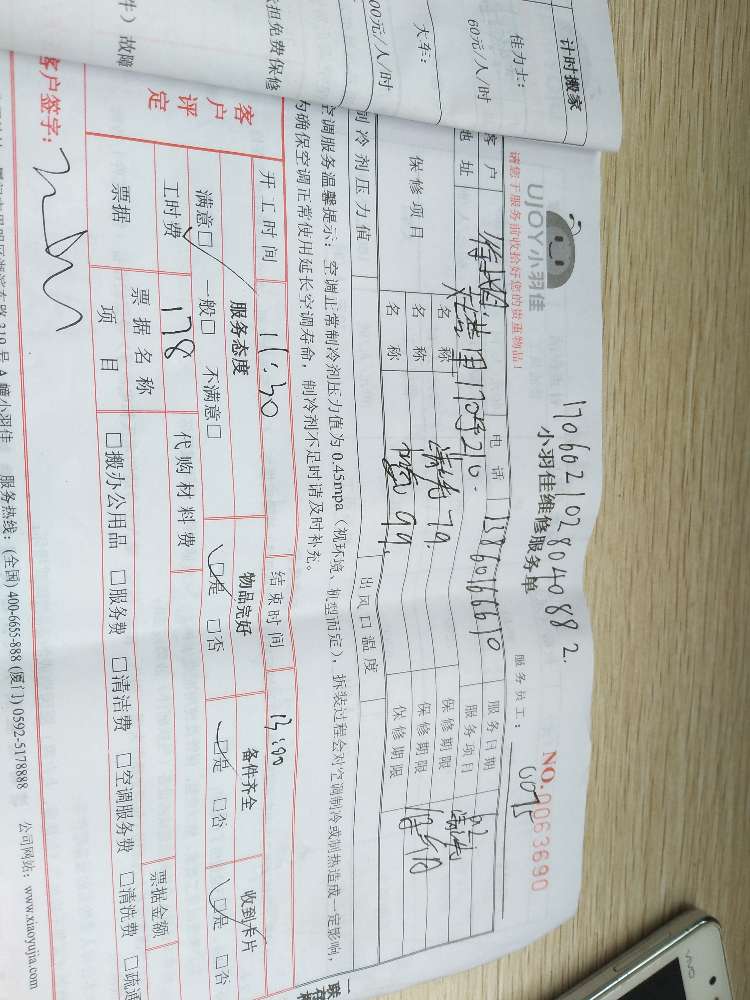 计时搬家
佳力士:
60元/人/时
大车:
00元/人/时
担免费保修
件）故障
UJOY小羽佳
请您于服务前收拾好您的贵重物品!
1706021028040882.
小羽佳维修服务单
服务员工:
007
NO.0063690
客户
电话
13860166610
服务日期
地址
170号210.
服务项目
清洗
保修项目
名称
清洗 79.
保修期限
名称
99.
保修期限
名称
保修期限
制冷剂压力值
出风口温度
空调服务温馨提示: 空调正常制冷剂压力值为 0.45mpa（视环境、机型而定），拆装过程会对空调制冷或制热造成一定影响，
为确保空调正常使用延长空调寿命，制冷剂不足时请及时补充。
开工时间
11:30
结束时间
13:00
客户评定
服务态度
物品完好
备件齐全
收到卡片
满意□ 一般□ 不满意□
□是 □否
□是 □否
□是 □否
工时费
178
代购材料费
票据
票据名称
票据金额
项目
□搬办公用品 □服务费 □清洁费 □空调服务费 □清洗费 □疏通
客户签字:
319号A幢小羽佳 服务热线: (全国) 400-6655-888 (厦门) 0592-5178888 公司网站: www.xiaoyujia.com
vivo